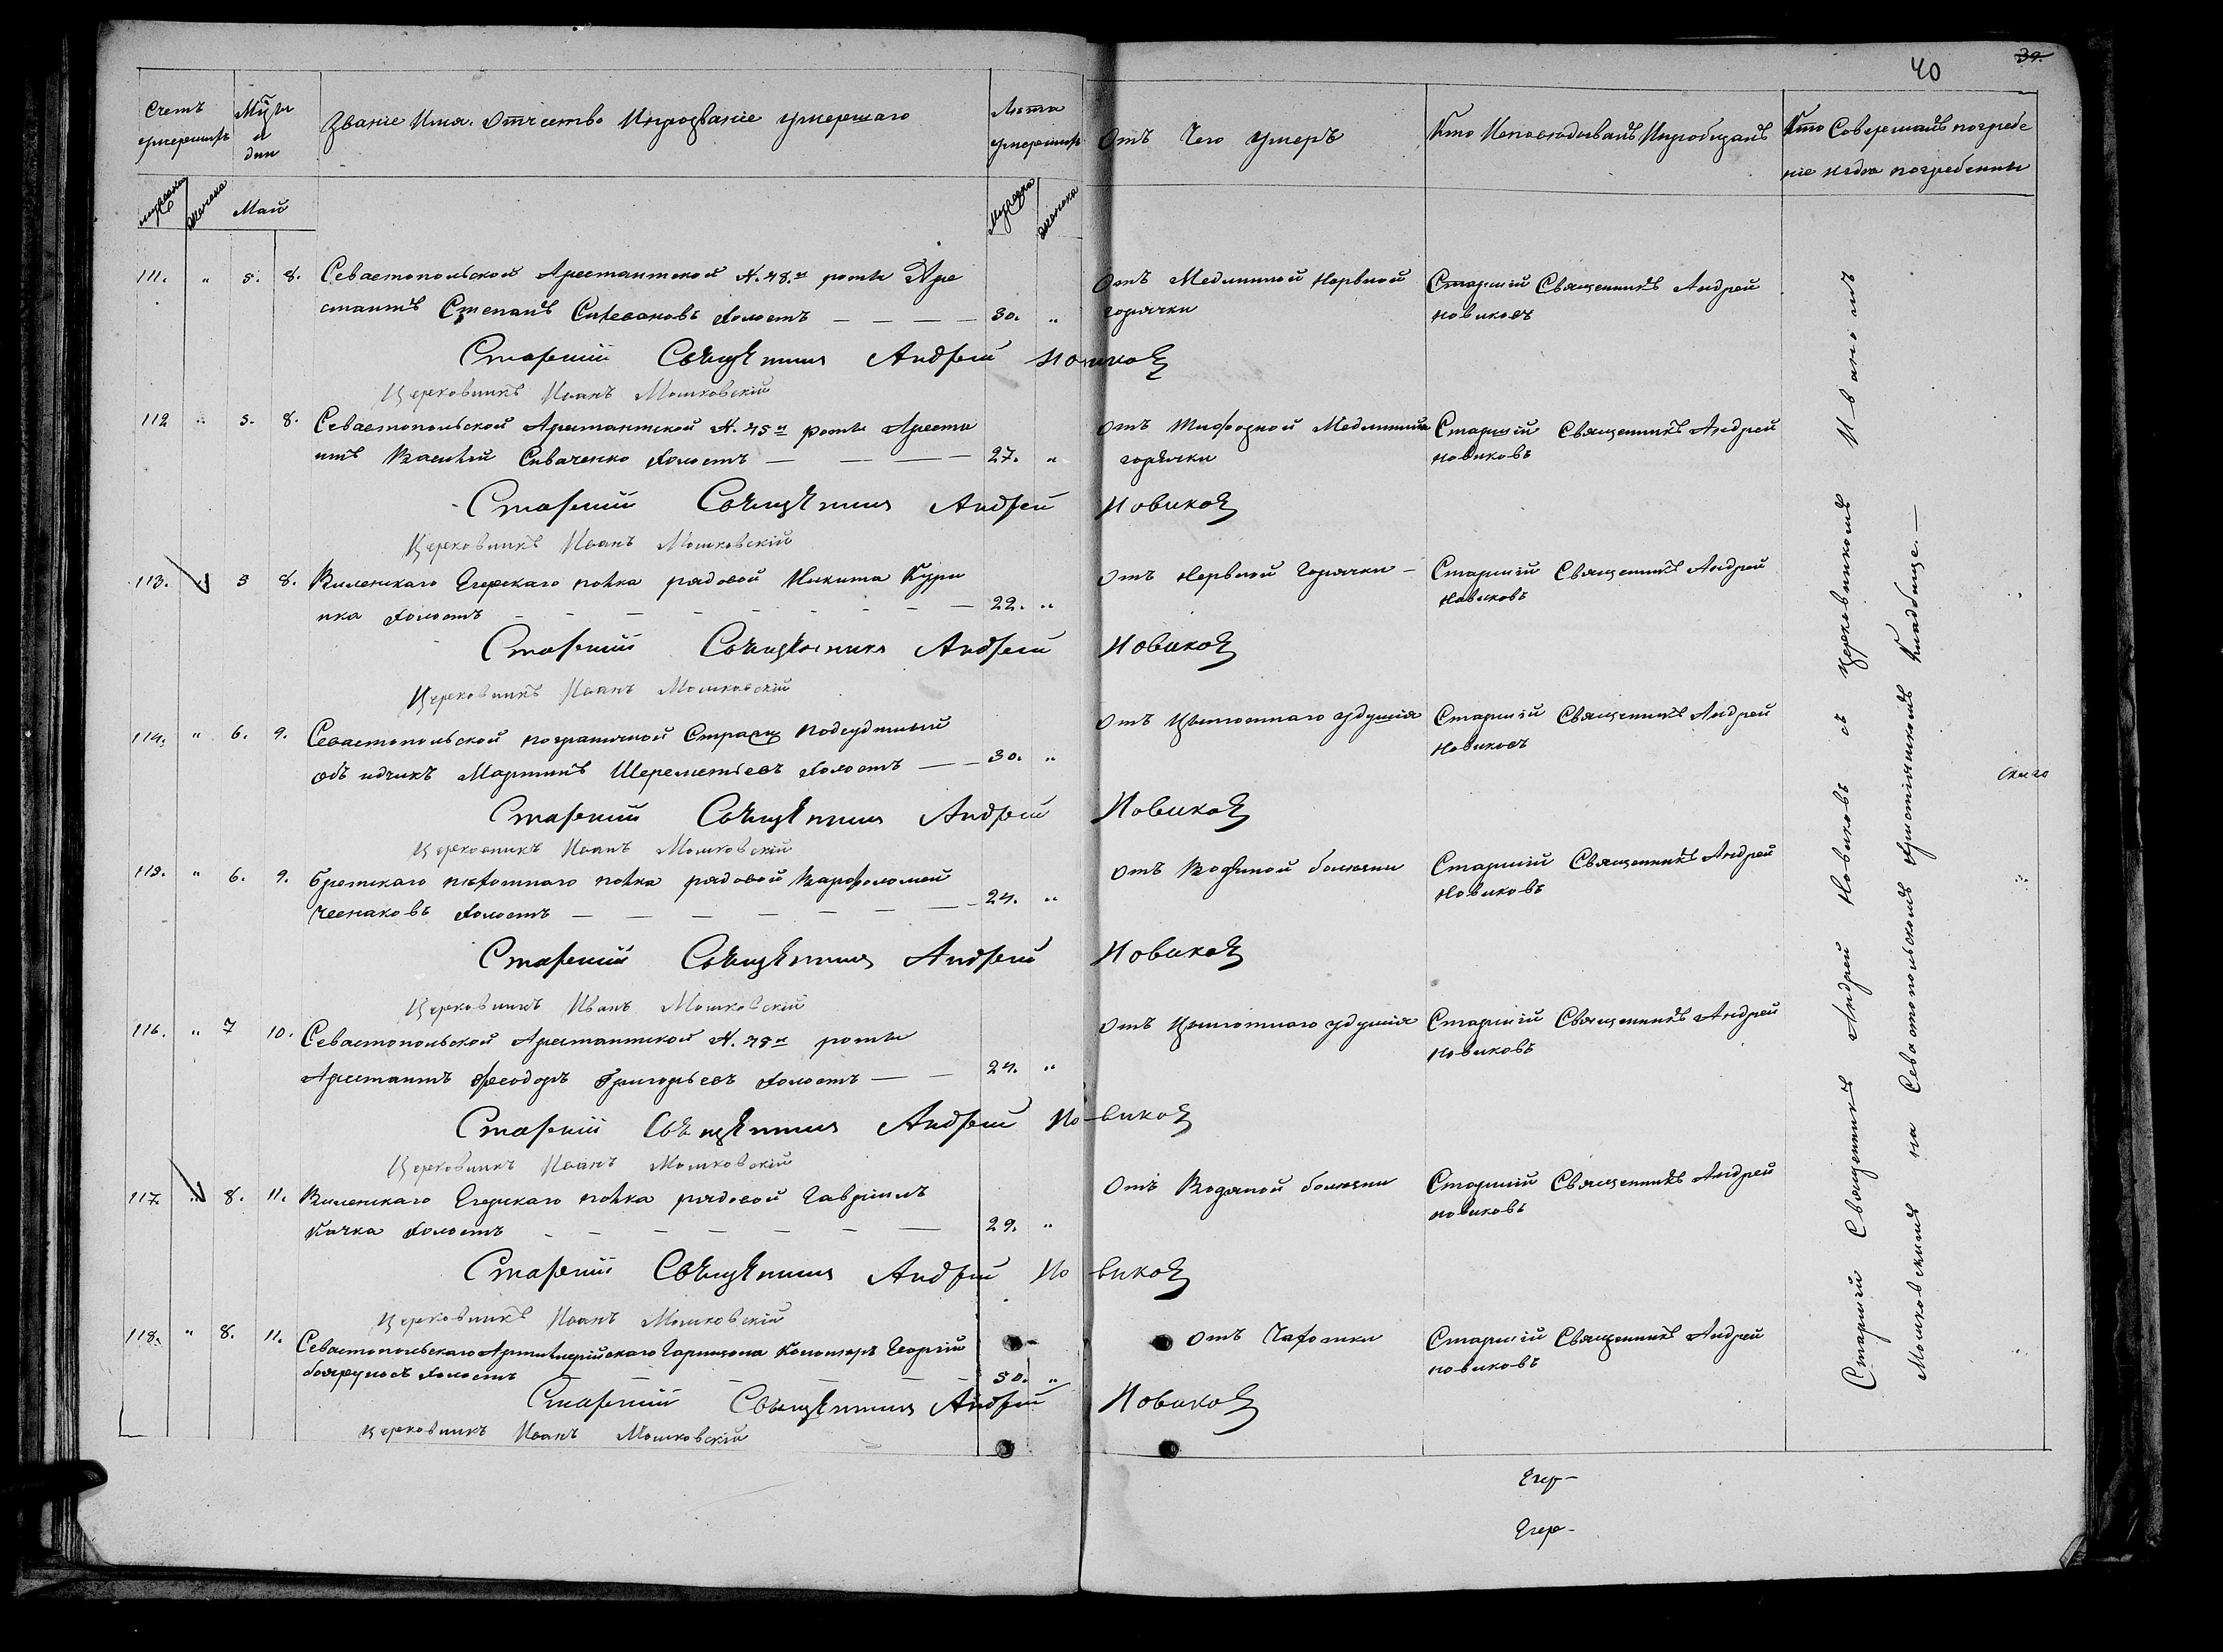 40
39.
Счетъ умершихъ
Мцы и дни
Званіе Имя. Отчество Ипрозваніе умершаго
Лѣта умершихъ
Отъ Чего умеръ
Кто Исповѣдывалъ Ипріобщалъ
Кто Совершалъ погребе
ніе игдѣ погребенъ
мужеска
женска
Май
Мужеска
женска
111. " 5. 8. Севастопольской Арестантской №. 48.й роты Аре
стантъ Степанъ Холостъ — — — — 30. "
Отъ Медленной Нервной
горячки
Старшій Священникъ Андрей
Новиковъ
Старшій Священникъ Андрей Новиковъ
Церковникъ Иванъ Мошковскій
112 " 5. 8. Севастопольской Арестантской №. 45й роты Ареста
нтъ Василій Сиваченко Холостъ — — — — 27. "
Отъ Тифозной Медленной
горячки
Старшій Священникъ Андрей
Новиковъ
Старшій Священникъ Андрей Новиковъ
Церковникъ Иванъ Мошковскій
113. " 5 8. Виленскаго Егерскаго полка рядовой Никита Кури
нка Холостъ — — — — — — — — 22. "
Отъ Нервной Горячки —
Старшій Священникъ Андрей
Новиковъ
Старшій Священникъ Андрей Новиковъ
Церковникъ Иванъ Мошковскій
114. " 6. 9. Севастопольской пограничной Стражи подсудимый
объѣздчикъ Мартинъ Шереметьевъ Холостъ — — 30. "
Отъ Цынготнаго удушія
Старшій Священникъ Андрей
Новиковъ
Старшій Священникъ Андрей Новиковъ
Церковникъ Иванъ Мошковскій
115. " 6. 9. Брестскаго пѣхотнаго полка рядовой Варфоломей
Чеснаковъ Холостъ — — — — — — — 24. "
Отъ Водяной болѣзни
Старшій Священникъ Андрей
Новиковъ
Старшій Священникъ Андрей Новиковъ
Церковникъ Иванъ Мошковскій
116. " 7 10. Севастопольской Арестантской №. 45й роты
Арестантъ Феодоръ Григорьевъ Холостъ — — 24. "
Отъ Цынготнаго удушія
Старшій Священникъ Андрей
Новиковъ
Старшій Священникъ Андрей Новиковъ
Церковникъ Иванъ Мошковскій
117. " 8. 11. Виленскаго Егерскаго полка рядовой Гавріилъ
Качка Холостъ — — — — — — 29. "
Отъ Водяной болѣзни
Старшій Священникъ Андрей
Новиковъ
Старшій Священникъ Андрей Новиковъ
Церковникъ Иванъ Мошковскій
118. " 8. 11. Севастопольскаго Артиллерійскаго Гарнизона Канониръ Георгій
Холостъ — — — — 50. "
Отъ Чахотки
Старшій Священникъ Андрей
Новиковъ
Старшій Священникъ Андрей Новиковъ
Церковникъ Иванъ Мошковскій
Старшій Священникъ Андрей Новиковъ съ церковникомъ Иваномъ
Мошковскимъ на Севастопольскомъ христіянскомъ Кладбище. —
Егер—
Егер-